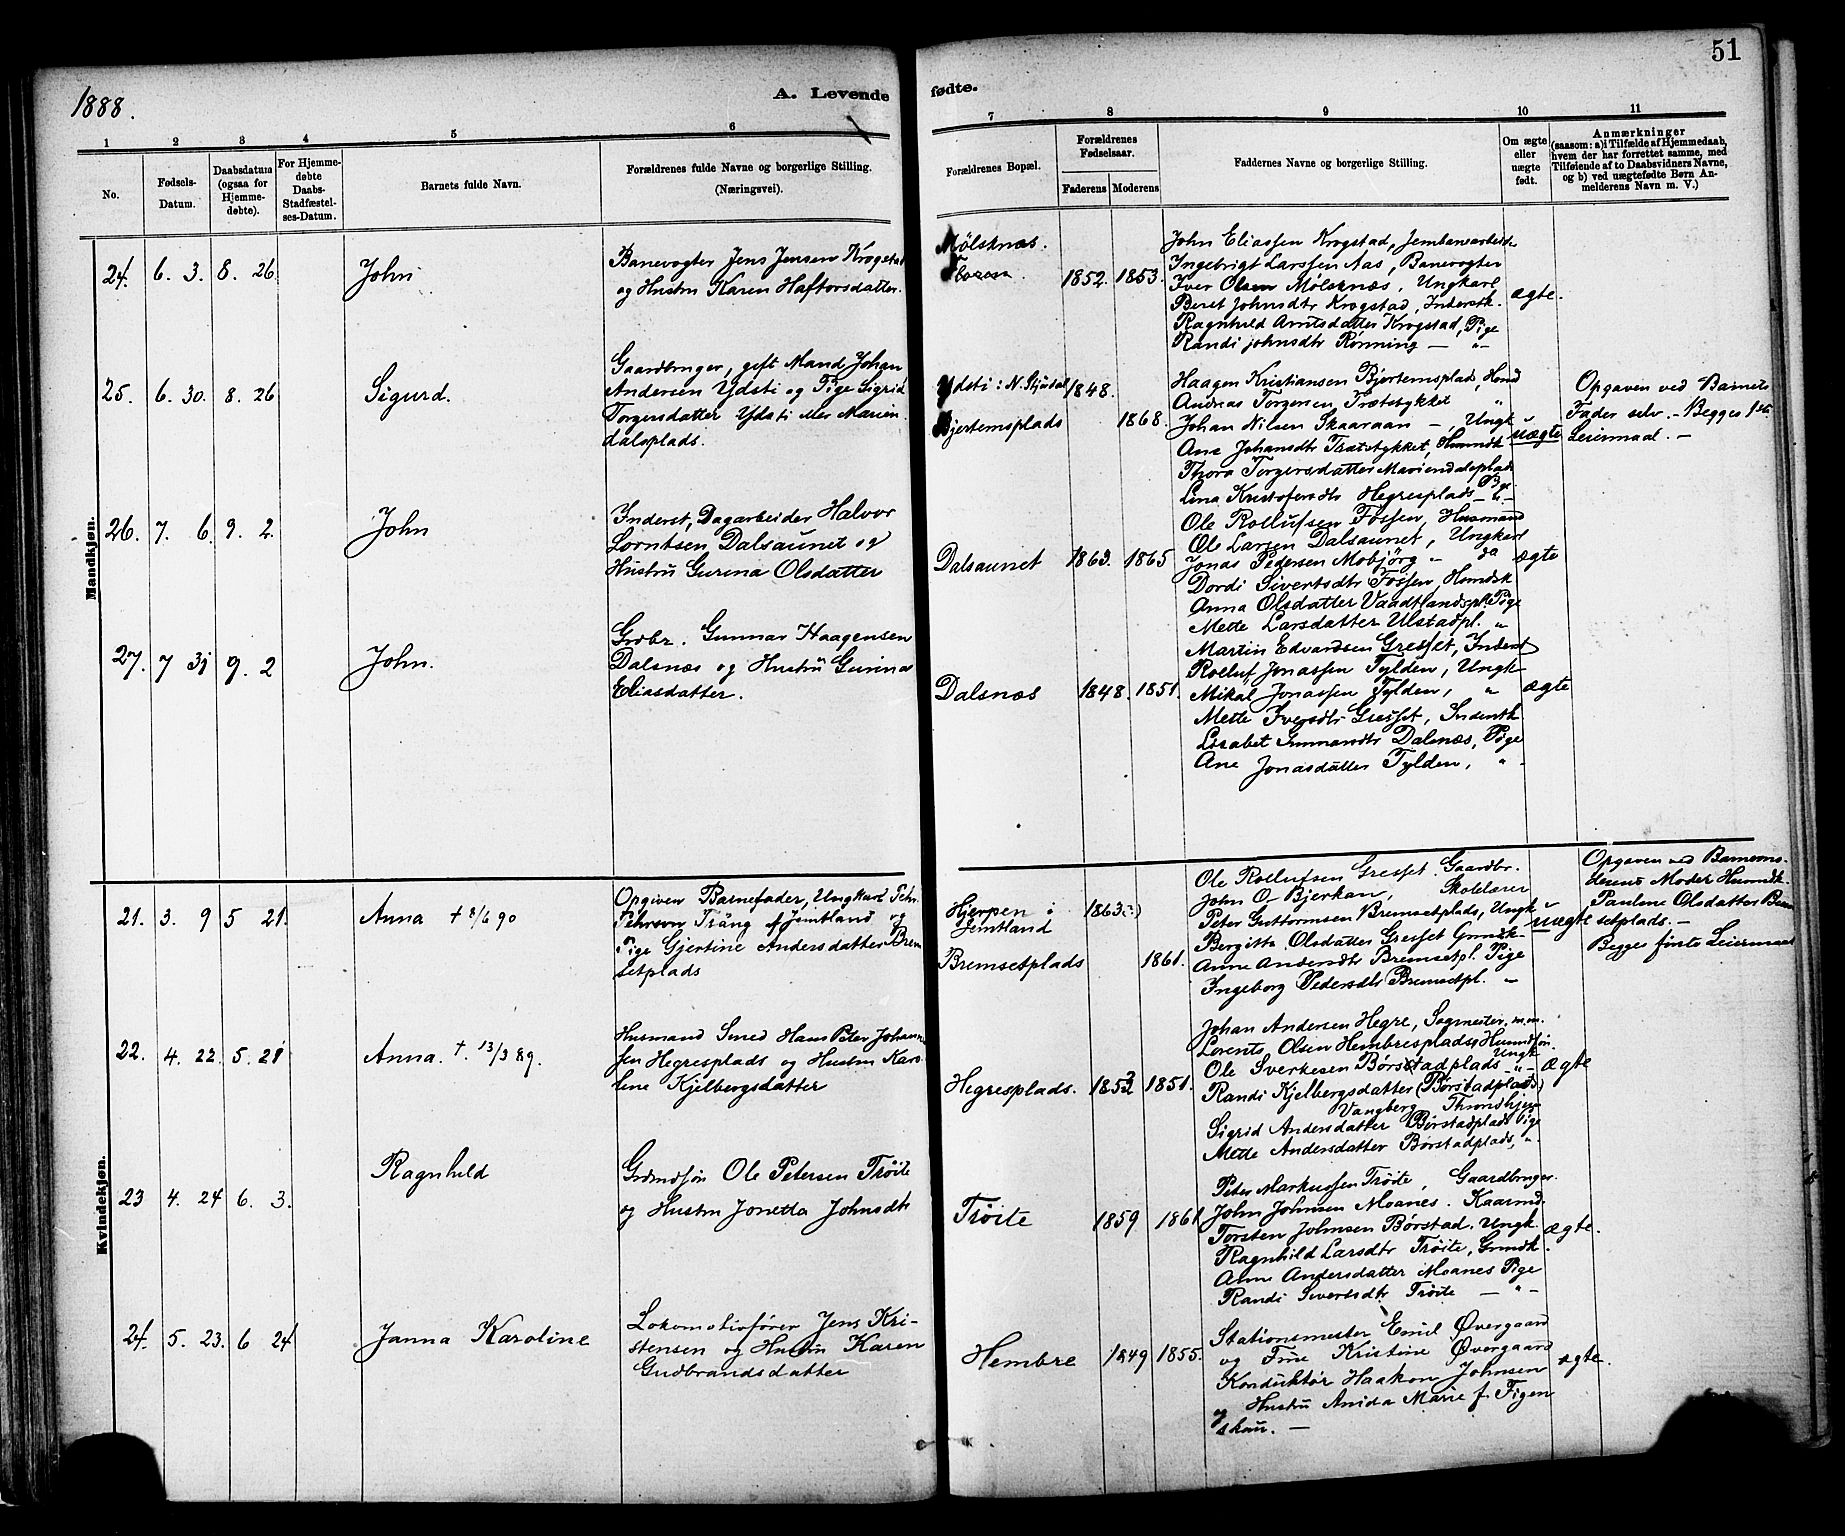 1888.
A. Levende
fødte.
51
1 2 3 4 5 6 7 8 9 10 11
No.
Fødsels-
Datum.
Daabsdatum
(ogsaa for
Hjemme-
døbte).
For Hjemme-
døbte
Daabs-
Stadfæstel-
ses-Datum.
Barnets fulde Navn.
Forældrenes fulde Navne og borgerlige Stilling.
(Næringsvei).
Forældrenes Bopæl.
Forældrenes
Fødselsaar.
Faderens
Moderens
Faddernes Navne og borgerlige Stilling.
Om ægte
eller
uægte
født.
Anmærkninger
(saasom: a) i Tilfælde af Hjemmedaab,
hvem der har forrettet samme, med
Tilføiende af to Daabsvidners Navne,
og b) ved uægtefødte Børn An-
melderens Navn m. V.)
Mandkjøn.
24. 6. 3. 8. 26. John
Banevogter Jens Jensen Krogstad
og Hustru Karen Haftorsdatter.
Mølsknæs.
1852. 1853.
John Eliassen Krogstad, Jernbanearbeid.
Ingebrigt Larssen Aas, Banevogter
Iver Olsen Mølsknæs, Ungkarl
Beret Johnsdtr Krogstad, Inderstk.
Ragnhild Arntsdatter Krogstad, Pige
Randi Johnsdtr Rønning — "
ægte.
25. 6. 30. 8. 26 Sigurd.
Gaardbruger, gift Mand Johan
Andersen Ydsti og Pige Sigrid
Torgersdatter Ydsti eller Marien
dalsplads.
Ydsti i N. Stjørdal 1848.
Bjertemsplads 1868.
Haagen Kristiansen Bjertemsplads, Hmd
Andreas Torgersen Trætstykket "
Johan Nilsen Skaaraan —, Ungk
Ane Johansdtr Trætstykket, Husmdk
Thora Torgersdatter Mariendalsplads
Pige
Lina Kristofersdtr Hegresplads — " —
uægte
Opgaven ved Barnets
Fader selv. — Begges 1ste
Leiermaal. —
26. 7. 6. 9. 2. John
Inderst, Dagarbeider Halvor
Lorntsen Dalsaunet og
Hustru Gurina Olsdatter
Dalsaunet 1863. 1865
Ole Rollufsen Fossen, Husmand
Ole Larsen Dalsaunet, Ungkarl
Jonas Pedersen Mobjørg " do
Dordi Sivertsdtr Fossen, Hmdsk
Anna Olsdatter Vaadtlandspl. Pige
Mette Larsdatter Ulstadpl. "
ægte
27. 7 31 9. 2 John.
Grdbr. Gunnar Haagensen
Dalsnæs og Hustru Gurina
Eliasdatter.
Dalsnæs 1848. 1851.
Martin Edvardsen Gresset, Inderst
Rolluf Jonassen Tylden, Ungk
Mikal Jonassen Tylden, "
Mette Iversdtr Gresset, Inderstk
Lisabet Gunnarsdtr Dalsnæs, Pige
Ane Jonasdatter Tylden, " .
ægte
Kvindekjøn.
21. 3. 9 5 21. Anna † 8/6 90
Opgiven Barnefader, Ungkarl Pehr
Pehrson Trång af Jemtland og
Pige Gjertine Andersdatter Brem
setplads
Hjerpen i 1863(?)
Jemtland
Bremsetplads 1861.
Ole Rollufsen Gresset. Gaardbr.
John O- Bjerkan, Skolelærer
Peter Guttormsen Bremsetplads, Ungk
Bergitta Olsdatter Gresset Grmdk.
Anne Andersdtr Bremsetpl. Pige
Ingeborg Pedersdtr Bremsetpl. "
uægte
Opgaven ved Barnemo-
derens Moder Husmdk.
Pauline Olsdatter Brem
setplads. —
Begges første Leiermaal
22. 4. 22. 5. 21 Anna. †. 13/3 89.
Husmand Smed Hans Peter Johann
sen Hegresplads og Hustru Karo-
line Kjelbergsdatter
Hegresplads. 1852 1851.
Johan Andersen Hegre, Sagmester, m.m.
Lorents Olsen Hembresplads, Husmdsøn.
Ungk
Ole Sverkesen Børstadplads — " —
Randi Kjelbergsdatter (Børstadplads)
Vangberg Throndhjem
Sigrid Andersdatter Børstadplads Pige
Mette Andersdatter Børstadplads, " .
ægte
23 4. 24 6. 3. Ragnhild
Grdmdsøn Ole Petersen Trøite
og Hustru Jonetta Johnsdtr
Trøite 1859 1861
Peter Markussen Trøite, Gaardbruger.
John Johnsen Moanes. Kaarmd.
Torsten Johnsen Børstad. Ungk.
Ragnhild Larsdtr Trøite, Grmdk.
Anne Andersdatter Moanes Pige
Randi Sivertsdtr Trøite — " —
ægte.
24. 5. 23. 6 24 Janna Karoline
Lokomotivfører Jens Kri-
stensen og Hustru Karen
Gudbrandsdatter
Hembre 1849 1855.
Stationsmester Emil Øvergaard
og Frue Kristine Øvergaard
Konduktør Haakon Johnsen
og Hustru Anida Marie f. Figen
skau. —
ægte.